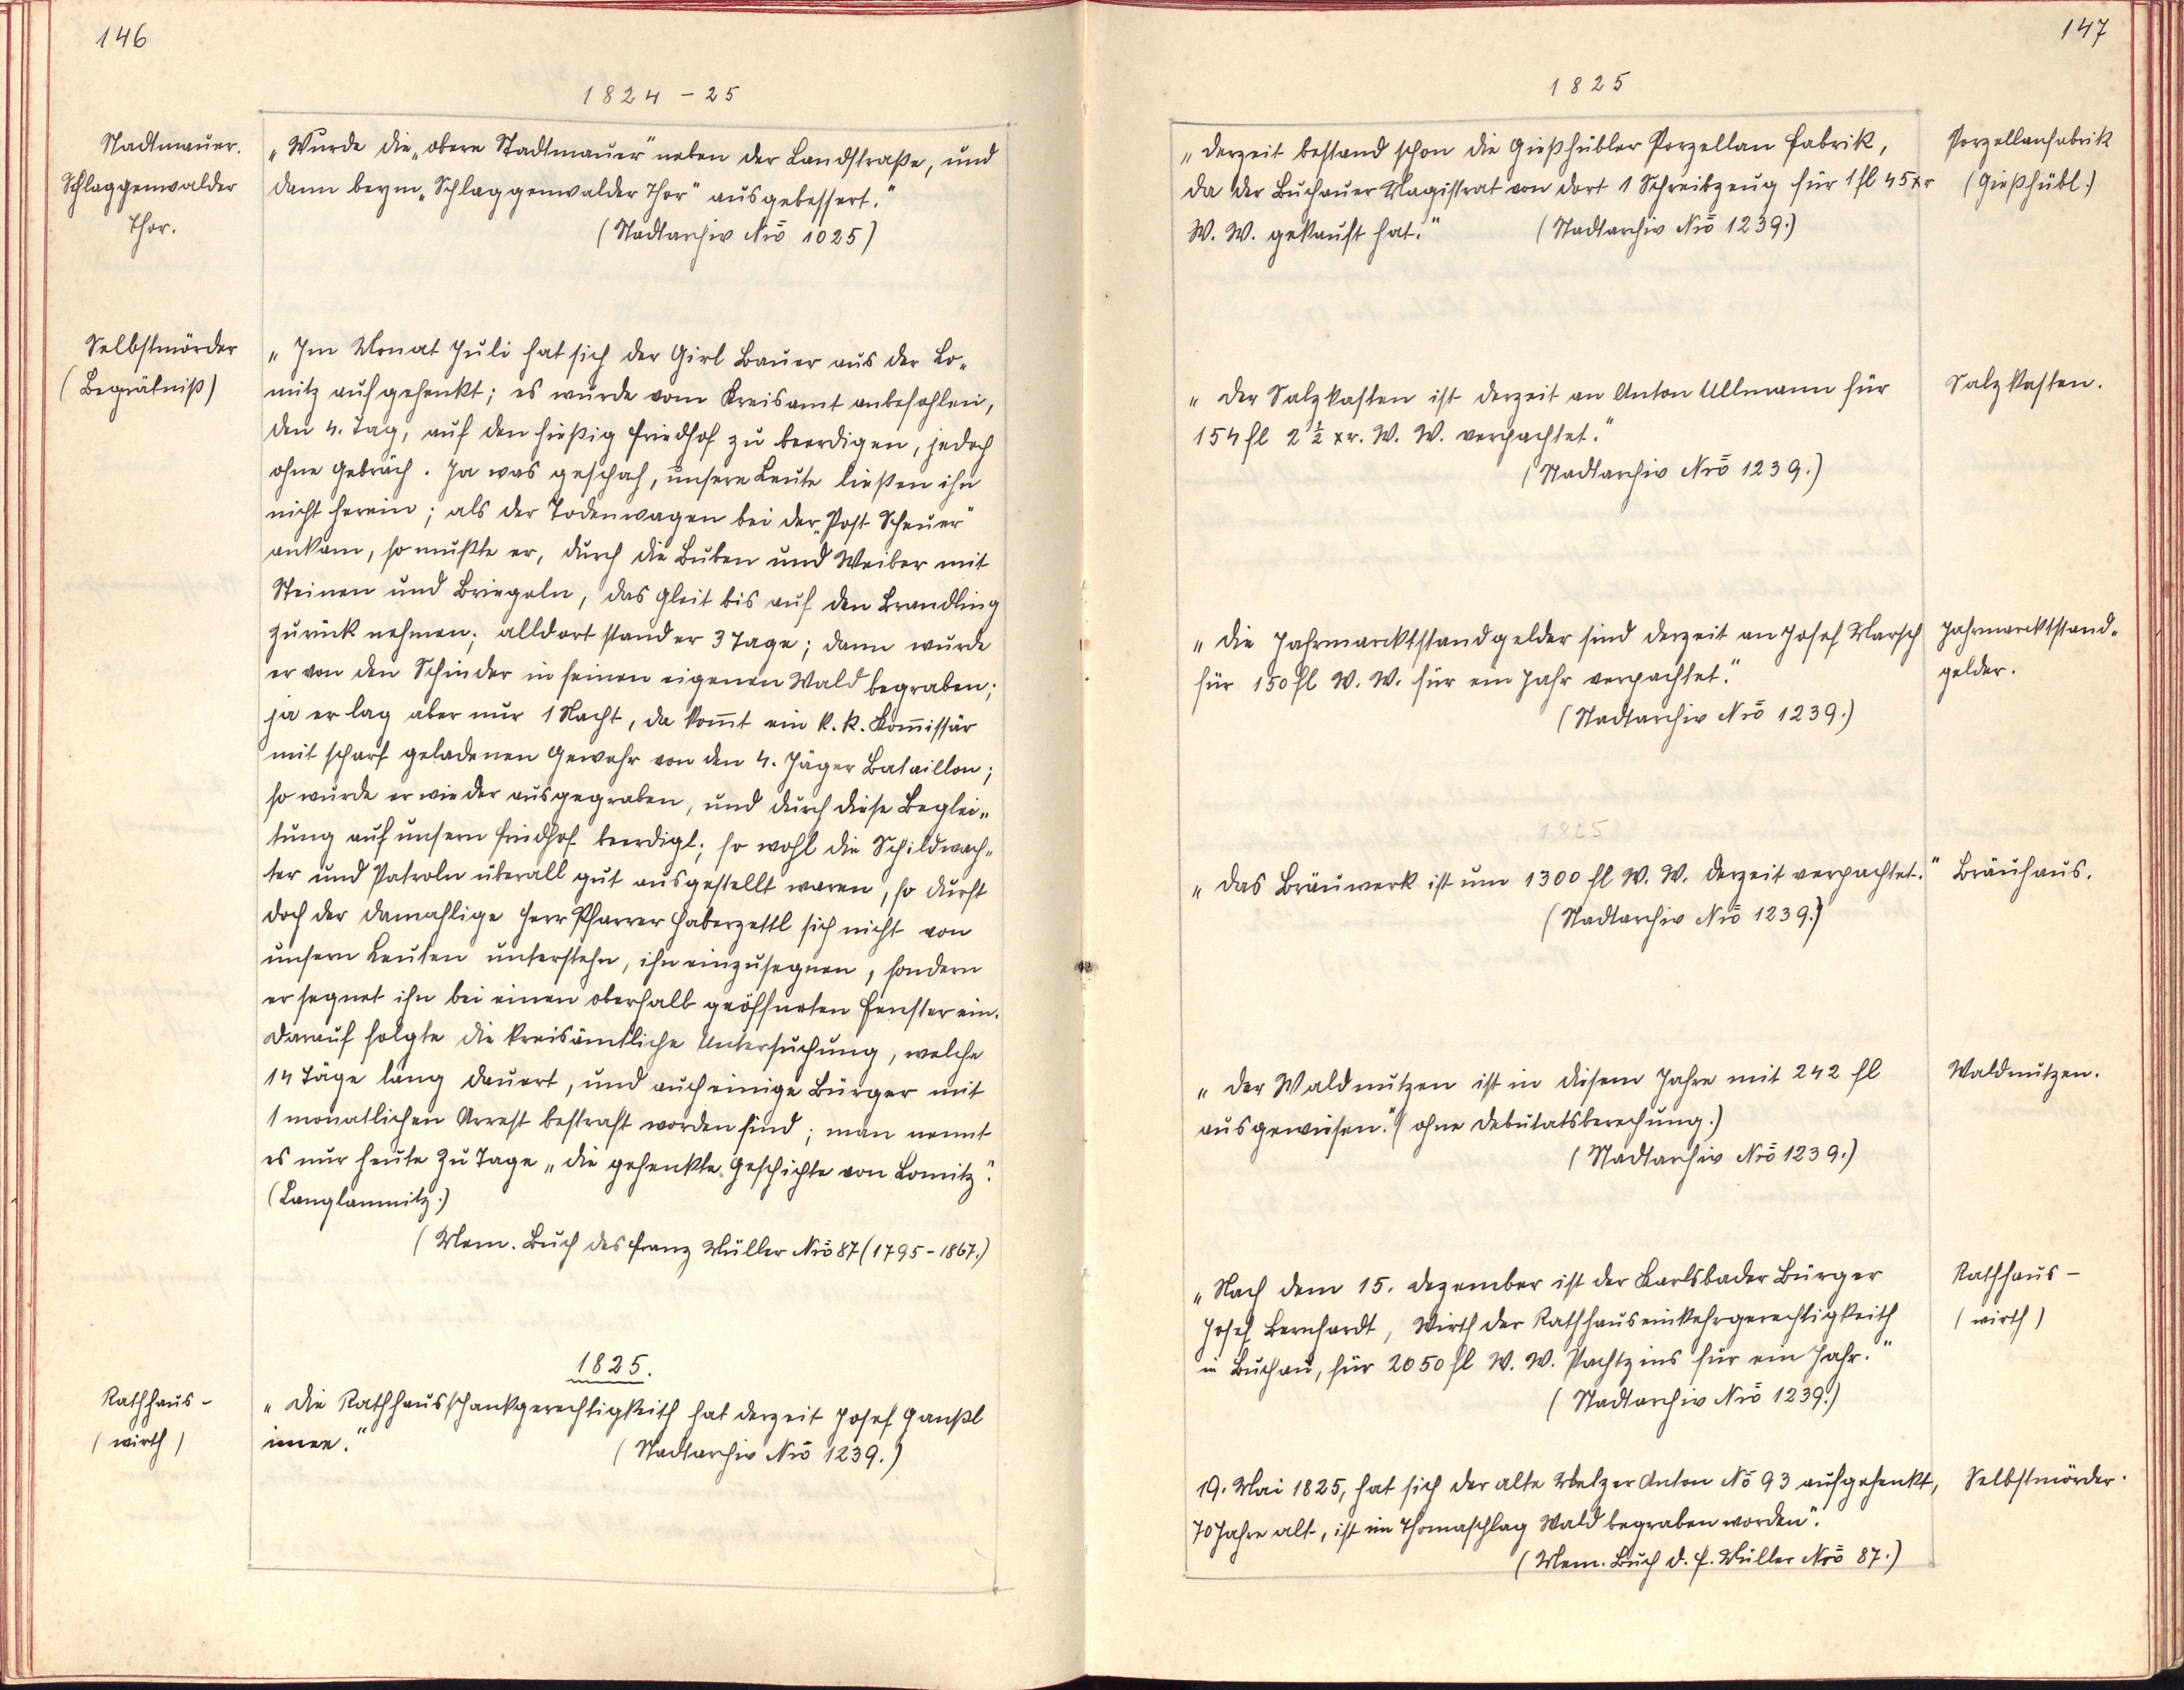 146
1824 - 25
Stadtmauer.
Schlaggenwalder
Thor.
„Wurde die „obere Stadtmauer" neben der Landstraße, und
dann beym „Schlaggenwalder Thor" ausgebessert."
(Stadtarchiv Nrō 1025)
Selbstmörder
(Begräbniß)
„Im Monat Juli hat sich der Girl Bauer aus der Lo-
mitz aufgehenkt; es wurde vom Kreisamt anbefohlen,
den 4. Tag, auf den hießig Friedhof zu beerdigen, jedoch
ohne Gebräch. Ja was geschah, unsere Leute ließen ihn
nicht herein; als der Todenwagen bei der „Post Scheuer"
ankam, so mußte er, durch die Buben und Weiber mit
Steinen und Briegeln, das Gleit bis auf den Brandling
zurück nehmen; alldort stand er 3 Tage; dann wurde
er von den Schinder in seinen eigenen Wald begraben;
ja er lag aber nur 1 Nacht, da kom̄t ein k. k. Kom̄issär
mit scharf geladenen Gewehr von den 4. Jäger Bataillon;
so wurde er wieder ausgegraben, und durch diese Beglei-
tung auf unsern Fridhof beerdigt; so wohl die Schildwach-
ter und Patroln überall gut ausgestellt waren, so durft
doch der damahlige Herr Pfarrer Haberzettl sich nicht von
unsern Leuten unterstehn, ihn einzusegnen, sondern
er segnet ihn bei einen oberhalb geöffneten Fenster ein.
Darauf folgte die kreisämtliche Untersuchung, welche
14 Täge lang dauert, und auch einige Bürger mit
1 monatlichen Arrest bestraft worden sind; man nennt
es nur heute zu Tage „die gehenkte Geschichte von Lomitz".
(Langlammitz.)
(Mem. Buch des Franz Müller Nrō 87 (1795 - 1867.)
1825.
Rathhaus -
(wirth)
„Die Rathhausschankgerechtigkeith hat derzeit Josef Ganßl
innen."
(Stadtarchiv Nrō 1239.)
147
1825
„Derzeit bestand schon die Gießhübler Porzellan Fabrik,
da der Buchauer Magistrat von dort 1 Schreibzeug für 1 fl 45 xr
W. W. gekauft hat."
(Stadtarchiv Nrō 1239.)
Porzellanfabrik
(Gießhübl.)
„Der Salzkasten ist derzeit an Anton Ullmann für
154 fl 2 ½ xr. W. W. verpachtet."
(Stadtarchiv Nrō 1239.)
Salzkasten.
„Die Jahrmarcktstandgelder sind derzeit an Josef Marsch
für 150 fl W. W. für ein Jahr verpachtet."
(Stadtarchiv Nrō 1239.)
Jahrmarcktstand-
gelder.
1825
„Das Bräuwerk ist um 1300 fl W. W. derzeit verpachtet."
(Stadtarchiv Nrō 1239.)
Bräuhaus.
„Der Waldnutzen ist in diesem Jahre mit 242 fl
ausgewiesen." (ohne Debutatsberechung.)
(Stadtarchiv Nrō 1239.)
Waldnutzen.
„Nach dem 15. Dezember ist der Karlsbader Bürger
Josef Bernhardt, Wirth der Rathhauseinkehrgerechtigkeith
in Buchau, für 2050 fl W. W. Pachtzins für ein Jahr."
(Stadtarchiv Nrō 1239.)
Rathhaus -
(wirth)
19. Mai 1825, hat sich der alte Melzer Anton Nō 93 aufgehenkt,
70 Jahre alt, ist im Thomaschlag Wald begraben worden".
(Mem. Buch d. F. Müller Nrō 87.)
Selbstmörder.